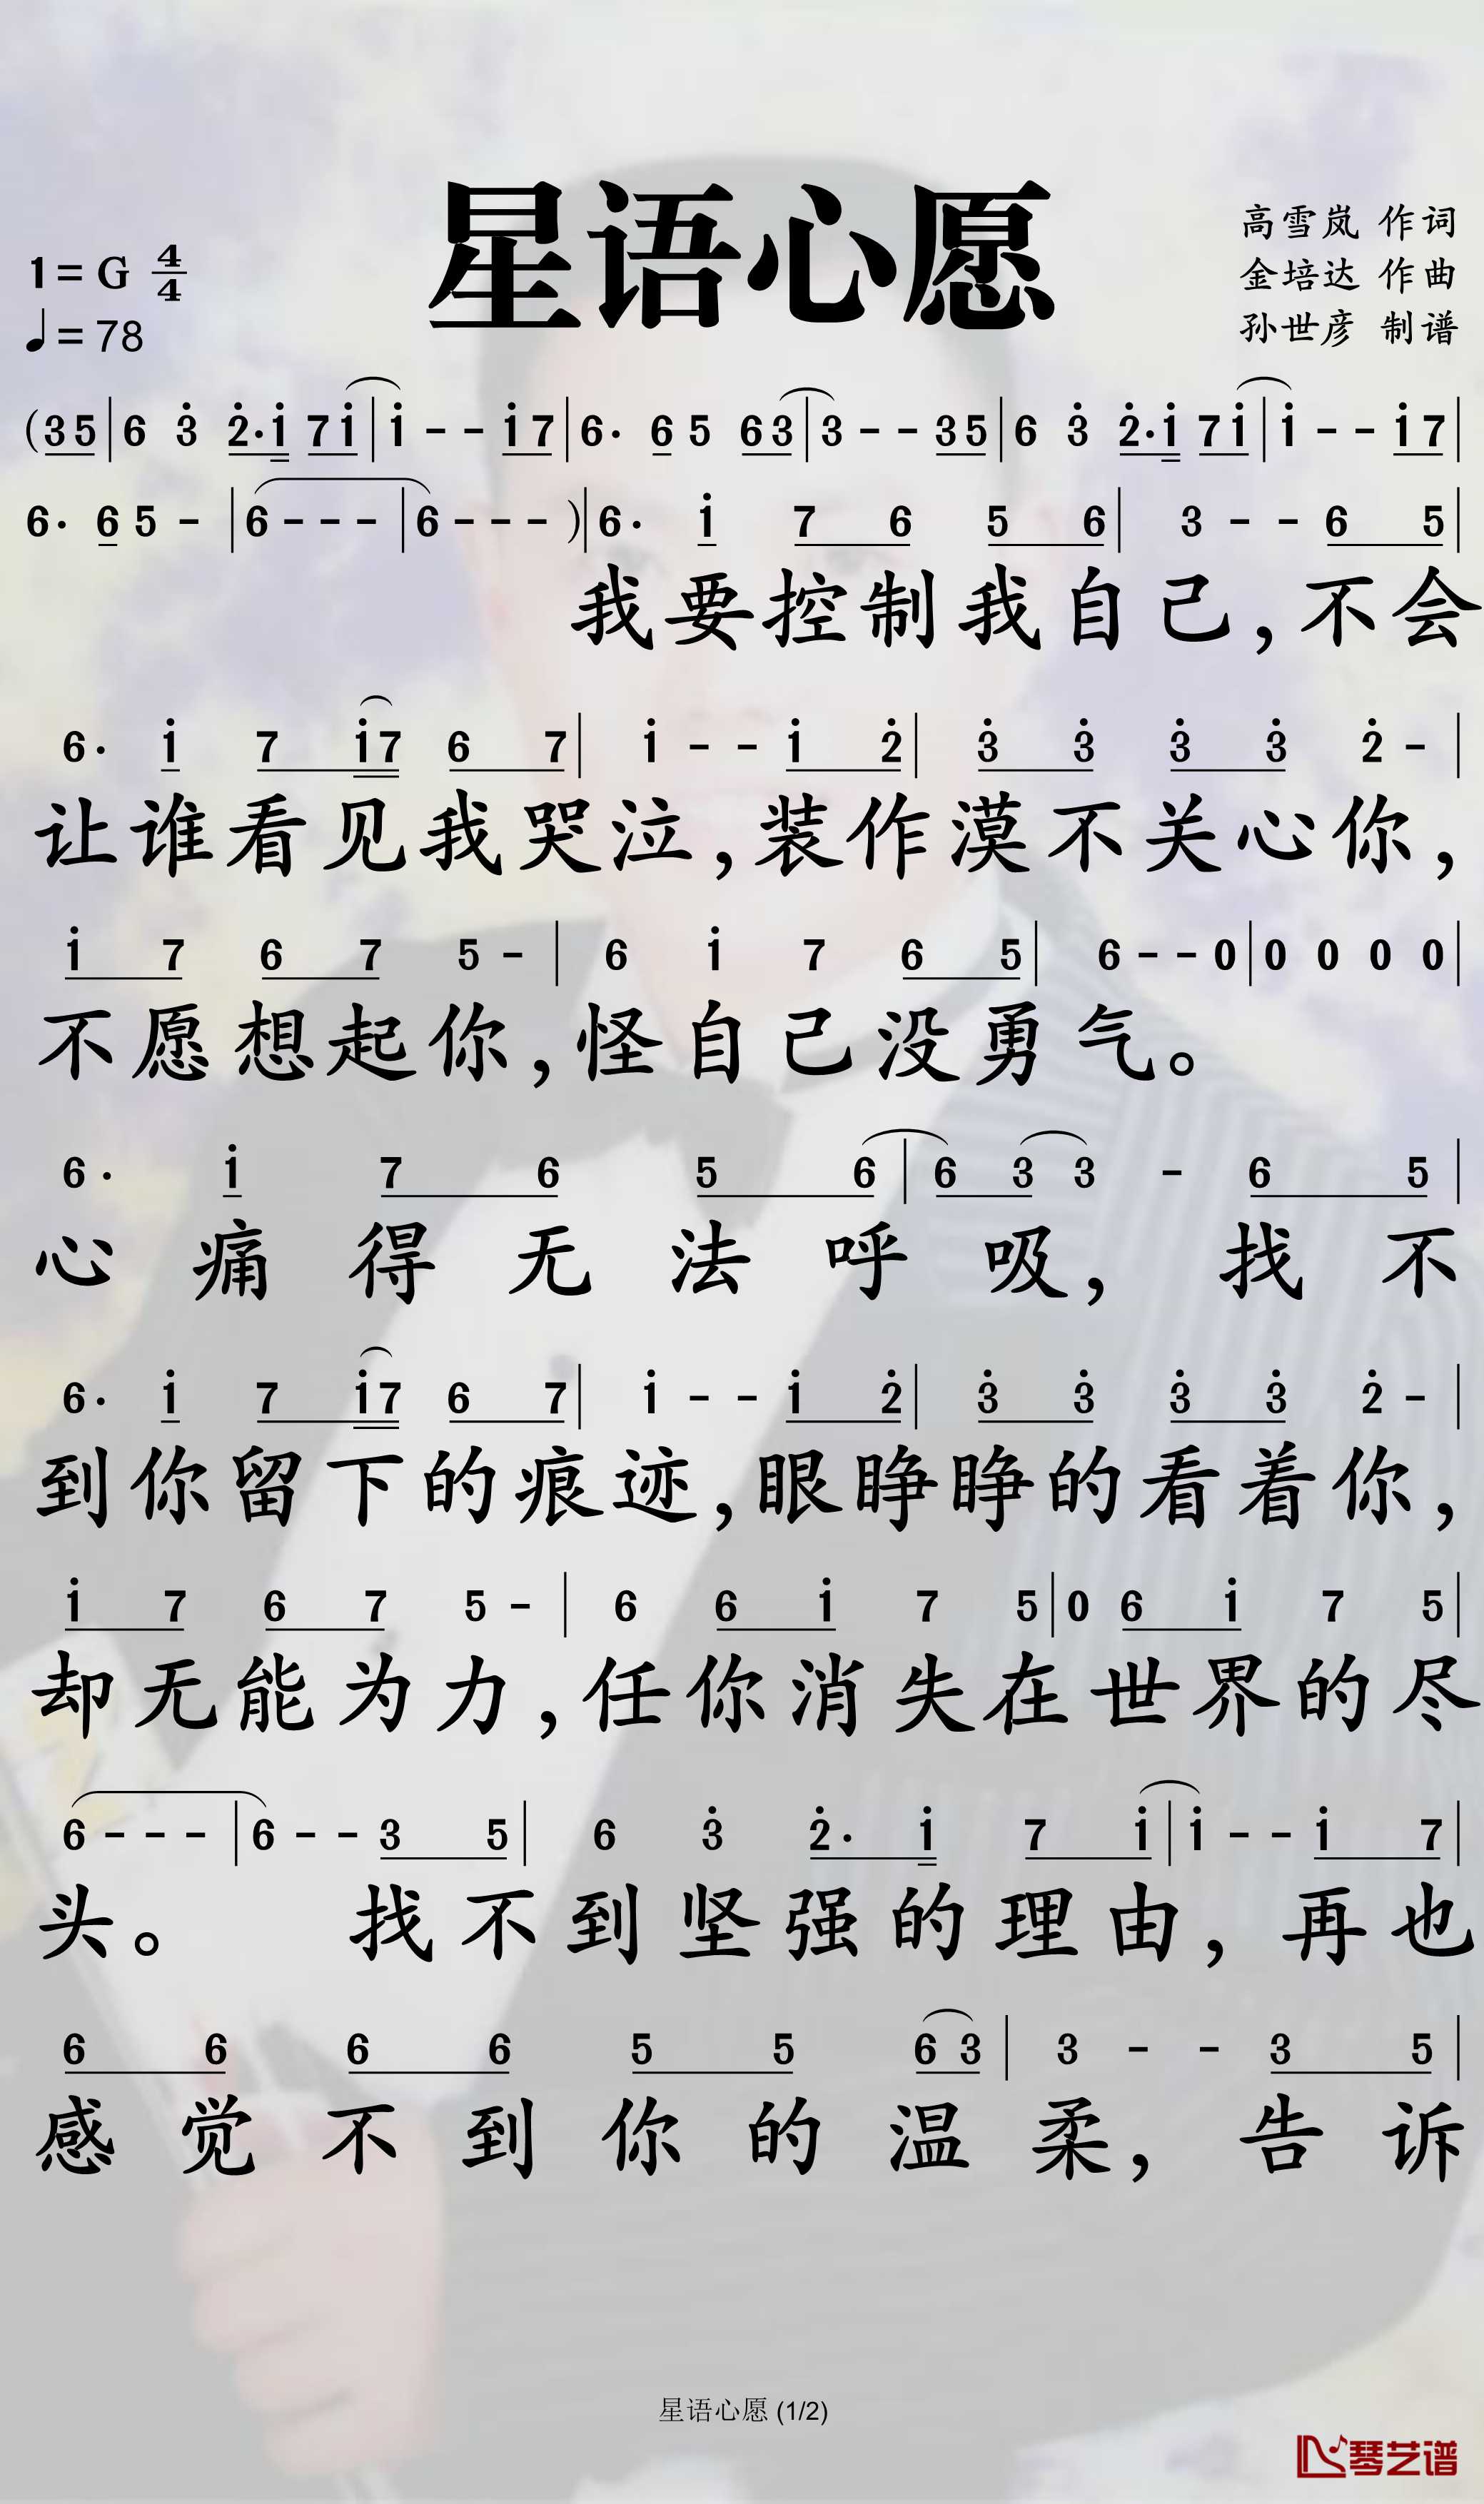 星语心愿
高雪岚 作词
1=G 4/4
金培达 作曲
♩=78
孙世彦 制谱
(3 5|6 3̇ 2̇·i̇ 7 i̇|i̇ - - i̇ 7|6· 6 5 6 3|3 - - 3 5|6 3̇ 2̇·i̇ 7 i̇|i̇ - - i̇ 7|
6· 6 5 -|6 - - -|6 - - -)|6· i̇ 7 6 5 6|3 - - 6 5|
我要控制我自己,不会
6· i̇ 7 i̇ 7 6 7|i̇ - - i̇ 2̇|3̇ 3̇ 3̇ 3̇ 2̇ -|
让谁看见我哭泣,装作漠不关心你,
i̇ 7 6 7 5 -|6 i̇ 7 6 5|6 - - 0|0 0 0 0|
不愿想起你,怪自己没勇气。
6· i̇ 7 6 5 6|6 3 3 - 6 5|
心痛得无法呼吸,找不
6· i̇ 7 i̇ 7 6 7|i̇ - - i̇ 2̇|3̇ 3̇ 3̇ 3̇ 2̇ -|
到你留下的痕迹,眼睁睁的看着你,
i̇ 7 6 7 5 -|6 6 i̇ 7 5|0 6 i̇ 7 5|
却无能为力,任你消失在世界的尽
6 - - -|6 - - 3 5|6 3̇ 2̇· i̇ 7 i̇|i̇ - - i̇ 7|
头。 找不到坚强的理由,再也
6 6 6 6 5 5 6 3|3 - - 3 5|
感觉不到你的温柔,告诉
星语心愿 (1/2)
琴艺谱